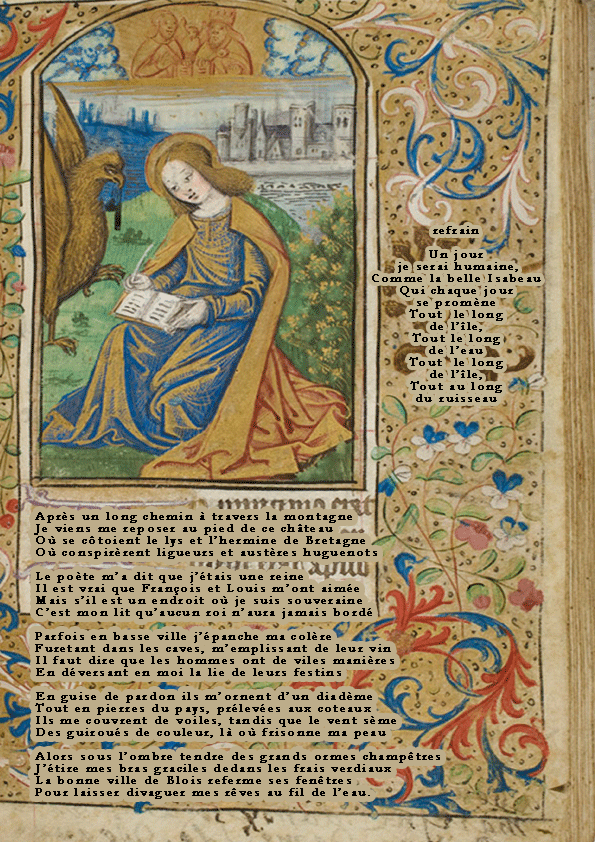 refrain
Un jour
je serai humaine,
Comme la belle Isabeau
Qui chaque jour
se promène
Tout le long
de l'île,
Tout le long
de l'eau
Tout le long
de l'île,
Tout au long
du ruisseau
Après un long chemin à travers la montagne
Je viens me reposer au pied de ce château
Où se côtoient le lys et l'hermine de Bretagne
Où conspirèrent ligueurs et austères huguenots
Le poète m'a dit que j'étais une reine
Il est vrai que François et Louis m'ont aimée
Mais s'il est un endroit où je suis souveraine
C'est mon lit qu'aucun roi n'aura jamais bordé
Parfois en basse ville j'épanche ma colère
Furetant dans les caves, m'emplissant de leur vin
Il faut dire que les hommes ont de viles manières
En déversant en moi la lie de leurs festins
En guise de pardon ils m'ornent d'un diadème
Tout en pierres du pays, prélevées aux coteaux
Ils me couvrent de voiles, tandis que le vent sème
Des guiroués de couleur, là où frisonne ma peau
Alors sous l'ombre tendre des grands ormes champêtres
J'étire mes bras graciles dedans les frais verdiaux
La bonne ville de Blois referme ses fenêtres
Pour laisser divaguer mes rêves au fil de l'eau.